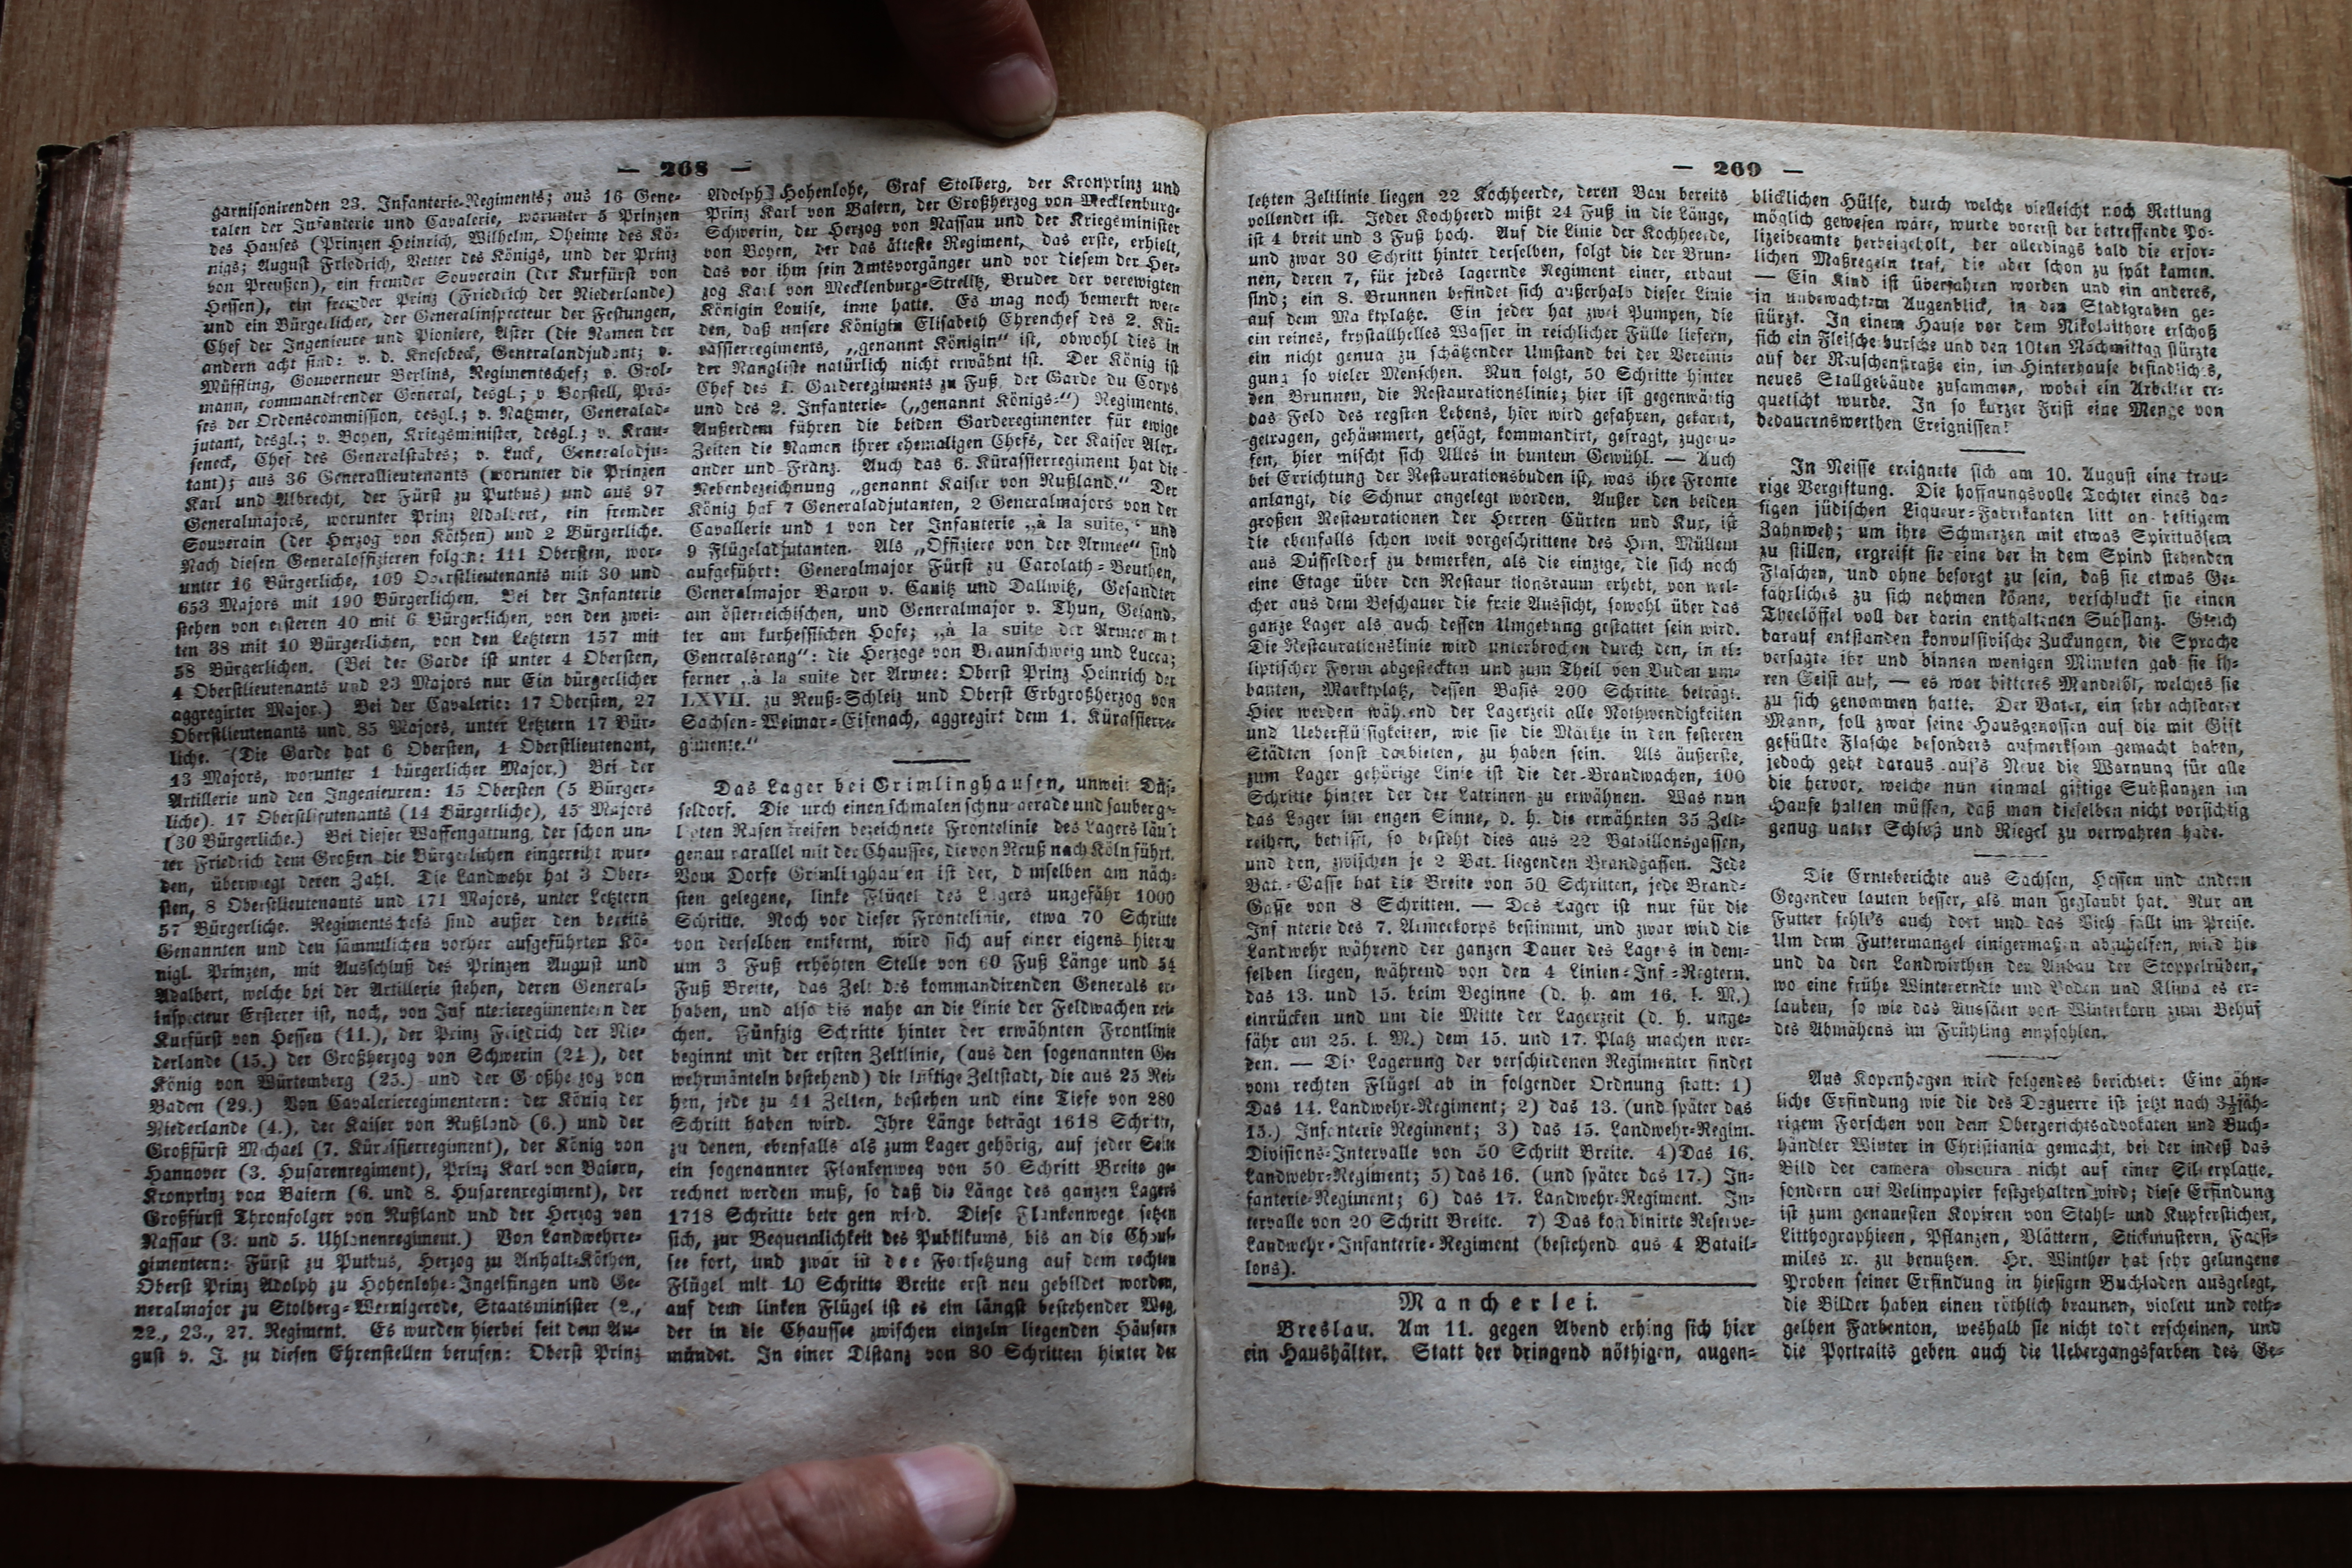 — 268 —
garnisonirenden 23. Infanterie-Regiments; aus 16 Gene-
ralen der Infanterie und Cavalerie, worunter 5 Prinzen
des Hauses (Prinzen Heinrich, Wilhelm, Oheime des Kö-
nigs; August Friedrich, Vetter des Königs, und der Prinz
von Preußen), ein fremder Souverain (der Kurfürst von
Hessen), ein fremder Prinz (Friedrich der Niederlande)
und ein Bürgerlicher, der Generalinspecteur der Festungen,
Chef der Ingenieure und Pioniere, Aster (die Namen der
andern acht sind: v. d. Knesebeck, Generalandjudant; v.
Müffling, Gouverneur Berlins, Regimentschef; v. Grol-
mann, commandirender General, desgl.; v Borstell, Prä-
ses der Ordenscommission, desgl.; v. Natzmer, Generalad-
jutant, desgl.; v. Boyen, Kriegsminister, desgl.; v. Krau-
seneck, Chef des Generalstabes; v. Luck, Generaladju-
tant); aus 36 Generallieutenants (worunter die Prinzen
Karl und Albrecht, der Fürst zu Putbus) und aus 97
Generalmajors, worunter Prinz Adalbert, ein fremder
Souverain (der Herzog von Köthen) und 2 Bürgerliche.
Nach diesen Generaloffizieren folgen: 111 Obersten, wor-
unter 16 Bürgerliche, 109 Oberstlieutenants mit 30 und
653 Majors mit 190 Bürgerlichen. Bei der Infanterie
stehen von ersteren 40 mit 6 Bürgerlichen, von den zwei-
ten 38 mit 10 Bürgerlichen, von den Letztern 157 mit
58 Bürgerlichen. (Bei der Garde ist unter 4 Obersten,
4 Oberstlieutenants und 23 Majors nur Ein bürgerlicher
aggregirter Major.) Bei der Cavalerie: 17 Obersten, 27
Oberstlieutenants und 85 Majors, unter Letztern 17 Bür-
liche. (Die Garde hat 6 Obersten, 1 Oberstlieutenant,
13 Majors, worunter 1 bürgerlicher Major.) Bei der
Artillerie und den Ingenieuren: 15 Obersten (5 Bürger-
liche). 17 Oberstlieutenants (14 Bürgerliche), 45 Majors
(30 Bürgerliche.) Bei dieser Waffengattung, der schon un-
ter Friedrich dem Großen die Bürgerlichen eingereiht wur-
den, überwiegt deren Zahl. Die Landwehr hat 3 Ober-
sten, 8 Oberstlieutenants und 171 Majors, unter Letztern
57 Bürgerliche. Regimentschefs sind außer den bereits
Genannten und den sämmtlichen vorher aufgeführten Kö-
nigl. Prinzen, mit Ausschluß des Prinzen August und
Adalbert, welche bei der Artillerie stehen, deren General-
inspecteur Ersterer ist, noch, von Infanterieregimentern der
Kurfürst von Hessen (11.), der Prinz Friedrich der Nie-
derlande (15.) der Großherzog von Schwerin (24), der
König von Würtemberg (25.) und der Großherzog von
Baden (29.) Von Cavalerieregimentern: der König der
Niederlande (4.), der Kaiser von Rußland (6.) und der
Großfürst Michael (7. Kürassierregiment), der König von
Hannover (3. Husarenregiment), Prinz Karl von Baiern,
Kronprinz von Baiern (6. und 8. Husarenregiment), der
Großfürst Thronfolger von Rußland und der Herzog von
Nassau (3. und 5. Uhlanenregiment.) Von Landwehrre-
gimentern: Fürst zu Putbus, Herzog zu Anhalt-Köthen,
Oberst Prinz Adolph zu Hohenlohe-Ingelfingen und Ge-
neralmajor zu Stolberg-Wernigerode, Staatsminister (2.,
22., 23., 27. Regiment. Es wurden hierbei seit dem Au-
gust v. J. zu diesen Ehrenstellen berufen: Oberst Prinz
Adolph Hohenlohe, Graf Stolberg, der Kronprinz und
Prinz Karl von Baiern, der Großherzog von Mecklenburg-
Schwerin, der Herzog von Nassau und der Kriegsminister
von Boyen, der das älteste Regiment, das erste, erhielt,
das vor ihm sein Amtsvorgänger und vor diesem der Her-
zog Karl von Mecklenburg-Strelitz, Bruder der verewigten
Königin Louise, inne hatte. Es mag noch bemerkt wer-
den, daß unsere Königin Elisabeth Ehrenchef des 2. Kü-
rassierregiments, „genannt Königin“ ist, obwohl dies in
der Rangliste natürlich nicht erwähnt ist. Der König ist
Chef des 1. Garderegiments zu Fuß, der Garde du Corps
und des 2. Infanterie- („genannt Königs-“) Regiments.
Außerdem führen die beiden Garderegimenter für ewige
Zeiten die Namen ihrer ehemaligen Chefs, der Kaiser Alex-
ander und Franz. Auch das 6. Kürassierregiment hat die
Nebenbezeichnung „genannt Kaiser von Rußland.“ Der
König hat 7 Generaladjutanten, 2 Generalmajors von der
Cavallerie und 1 von der Infanterie „à la suite,“ und
9 Flügeladjutanten. Als „Offiziere von der Armee“ sind
aufgeführt: Generalmajor Fürst zu Carolath-Beuthen,
Generalmajor Baron v. Canitz und Dallwitz, Gesandter
am österreichischen, und Generalmajor v. Thun, Gesand-
ter am kurhessischen Hofe; „à la suite der Armee mt
Generalsrang“: die Herzoge von Braunschweig und Lucca;
ferner „à la suite der Armee: Oberst Prinz Heinrich der
LXVII. zu Reuß-Schleiz und Oberst Erbgroßherzog von
Sachsen-Weimar-Eisenach, aggregirt dem 1. Kürassierre-
gimente.“
Das Lager bei Grimlinghausen, unweit Düs-
seldorf. Die urch einen schmalen schnurgerade und sauberg-
l eten Rasenstreifen bezeichnete Frontelinie des Lagers läuft
genau parallel mit der Chaussee, die von Neuß nach Köln führt.
Vom Dorfe Grimlinghausen ist der, d mselben am näch-
sten gelegene, linke Flügel des Lagers ungefähr 1000
Schritte. Noch vor dieser Frontelinie, etwa 70 Schritte
von derselben entfernt, wird sich auf einer eigens hierzu
um 3 Fuß erhöhten Stelle von 60 Fuß Länge und 54
Fuß Breite, das Zelt des kommandirenden Generals er-
haben, und also bis nahe an die Linie der Feldwachen rei-
chen. Fünfzig Schritte hinter der erwähnten Frontlinie
beginnt mit der ersten Zeltlinie, (aus den sogenannten Ge-
wehrmänteln bestehend) die luftige Zeltstadt, die aus 25 Rei-
hen, jede zu 44 Zelten, bestehen und eine Tiefe von 280
Schritt haben wird. Ihre Länge beträgt 1618 Schritt,
zu denen, ebenfalls als zum Lager gehörig, auf jeder Seite
ein sogenannter Flankenweg von 50 Schritt Breite ge-
rechnet werden muß, so daß die Länge des ganzen Lagers
1718 Schritte betr gen wird. Diese Flankenwege setzen
sich, zur Bequemlichkeit des Publikums, bis an die Chaus-
see fort, und zwar in de Fortsetzung auf dem rechten
Flügel mit 10 Schritte Breite erst neu gebildet worden,
auf dem linken Flügel ist es ein längst bestehender Weg,
der in die Chaussee zwischen einzeln liegenden Häusern
mündet. In einer Distanz von 80 Schritten hinter der
— 269 —
letzten Zeltlinie liegen 22 Kochheerde, deren Bau bereits
vollendet ist. Jeder Kochheerd mißt 24 Fuß in die Länge,
ist 4 breit und 3 Fuß hoch. Auf die Linie der Kochheerde,
und zwar 30 Schritt hinter derselben, folgt die der Brun-
nen, deren 7, für jedes lagernde Regiment einer, erbaut
sind; ein 8. Brunnen befindet sich außerhalb dieser Linie
auf dem Ma ktplatze. Ein jeder hat zwei Pumpen, die
ein reines, krystallhelles Wasser in reichlicher Fülle liefern,
ein nicht genug zu schätzender Umstand bei der Vereini-
gung so vieler Menschen. Nun folgt, 50 Schritte hinter
den Brunnen, die Restaurationslinie; hier ist gegenwärtig
das Feld des regsten Lebens, hier wird gefahren, gekarrt,
getragen, gehämmert, gesägt, kommandirt, gefragt, zugeru-
fen, hier mischt sich Alles in buntem Gewühl. — Auch
bei Errichtung der Restaurationsbuden ist, was ihre Fronte
anlangt, die Schnur angelegt worden. Außer den beiden
großen Restaurationen der Herren Cürten und Kur, ist
die ebenfalls schon weit vorgeschrittene des Hrn. Müllem
aus Düsseldorf zu bemerken, als die einzige, die sich noch
eine Etage über den Restaur tionsraum erhebt, von wel-
cher aus dem Beschauer die freie Aussicht, sowohl über das
ganze Lager als auch dessen Umgebung gestattet sein wird.
Die Restaurationslinie wird unterbrochen durch den, in el-
liptischer Form abgesteckten und zum Theil von Buden um-
bauten, Marktplatz, dessen Basis 200 Schritte beträgt.
Hier werden während der Lagerzeit alle Nothwendigkeiten
und Ueberflüssigkeiten, wie sie die Märkte in den festeren
Städten sonst darbieten, zu haben sein. Als äußerste,
zum Lager gehörige Linie ist die der Brandwachen, 100
Schritte hinter der der Latrinen zu erwähnen. Was nun
das Lager im engen Sinne, d. h. die erwähnten 35 Zelt-
reihen, betrifft, so besteht dies aus 22 Bataillonsgassen,
und den, zwischen je 2 Bat. liegenden Brandgassen. Jede
Bat.-Gasse hat die Breite von 50 Schritten, jede Brand-
Gasse von 8 Schritten. — Das Lager ist nur für die
Inf nterie des 7. Armeekorps bestimmt, und zwar wird die
Landwehr während der ganzen Dauer des Lagers in dem-
selben liegen, während von den 4 Linien-Inf-Regtern.
das 13. und 15. beim Beginne (d. h. am 16. l. M.)
einrücken und um die Mitte der Lagerzeit (d. h. unge-
fähr am 25. l. M.) dem 15. und 17. Platz machen wer-
den. — Die Lagerung der verschiedenen Regimenter findet
vom rechten Flügel ab in folgender Ordnung statt: 1)
Das 14. Landwehr-Regiment; 2) das 13. (und später das
15.) Infanterie Regiment; 3) das 15. Landwehr-Regim.
Divisions-Intervalle von 50 Schritt Breite. 4) Das 16.
Landwehr-Regiment; 5) das 16. (und später das 17.) In-
fanterie-Regiment; 6) das 17. Landwehr-Regiment. In-
tervalle von 20 Schritt Breite. 7) Das kombinirte Reserve-
Landwehr-Infanterie-Regiment (bestehend aus 4 Batail-
lons).
Mancherlei.
Breslau. Am 11. gegen Abend erhing sich hier
ein Haushälter. Statt der dringend nöthigen, augen-
blicklichen Hülfe, durch welche vielleicht noch Rettung
möglich gewesen wäre, wurde vorerst der betreffende Po-
lizeibeamte herbeigeholt, der allerdings bald die erfor-
lichen Maßregeln traf, die aber schon zu spät kamen.
— Ein Kind ist überfahren worden und ein anderes,
in unbewachtem Augenblick, in den Stadtgraben ge-
stürzt. In einem Hause vor dem Nikolaithore erschoß
sich ein Fleischerbursche und den 10ten Nachmittag stürzte
auf der Reuschenstraße ein, im Hinterhause befindliches,
neues Stallgebäude zusammen, wobei ein Arbeiter er-
quetscht wurde. In so kurzer Frist eine Menge von
bedauernswerthen Ereignissen!
In Neisse ereignete sich am 10. August eine trau-
rige Vergiftung. Die hoffnungsvolle Tochter eines da-
sigen jüdischen Liqueur-Fabrikanten litt an heftigem
Zahnweh; um ihre Schmerzen mit etwas Spirituösem
zu stillen, ergreift sie eine der in dem Spind stehenden
Flaschen, und ohne besorgt zu sein, daß sie etwas Ge-
fährliches zu sich nehmen könne, verschluckt sie einen
Theelöffel voll der darin enthaltenen Substanz. Gleich
darauf entstanden konvulsivische Zuckungen, die Sprache
versagte ihr und binnen wenigen Minuten gab sie ih-
ren Geist auf, — es war bitteres Mandelöl, welches sie
zu sich genommen hatte. Der Vater, ein sehr achtbarer
Mann, soll zwar seine Hausgenossen auf die mit Gift
gefüllte Flasche besonders aufmerksam gemacht haben,
jedoch geht daraus auf's Neue die Warnung für alle
die hervor, welche nun einmal giftige Substanzen im
Hause halten müssen, daß man dieselben nicht vorsichtig
genug unter Schloß und Riegel zu verwahren habe.
Die Ernteberichte aus Sachsen, Hessen und andern
Gegenden lauten besser, als man geglaubt hat. Nur an
Futter fehlt's auch dort und das Vieh fällt im Preise.
Um dem Futtermangel einigermaßen abzuhelfen, wird hie
und da den Landwirthen der Anbau der Stoppelrüben,
wo eine frühe Winterernde und Boden und Klima es er-
lauben, so wie das Aussäen von Winterkorn zum Behuf
des Abmähens im Frühling empfohlen.
Aus Kopenhagen wird folgendes berichtet: Eine ähn-
liche Erfindung wie die des Daguerre ist jetzt nach 3½jäh-
rigem Forschen von dem Obergerichtsadvokaten und Buch-
händler Winter in Christiania gemacht, bei der indeß das
Bild der camera obscura nicht auf einer Silberplatte,
sondern auf Velinpapier festgehalten wird; diese Erfindung
ist zum genauesten Kopiren von Stahl- und Kupferstichen,
Litthographieen, Pflanzen, Blättern, Stickmustern, Facsi-
miles ꝛc. zu benutzen. Hr. Winther hat sehr gelungene
Proben seiner Erfindung in hiesigen Buchladen ausgelegt,
die Bilder haben einen röthlich braunen, violett und roth-
gelben Farbenton, weshalb sie nicht todt erscheinen, und
die Portraits geben auch die Uebergangsfarben des Ge-